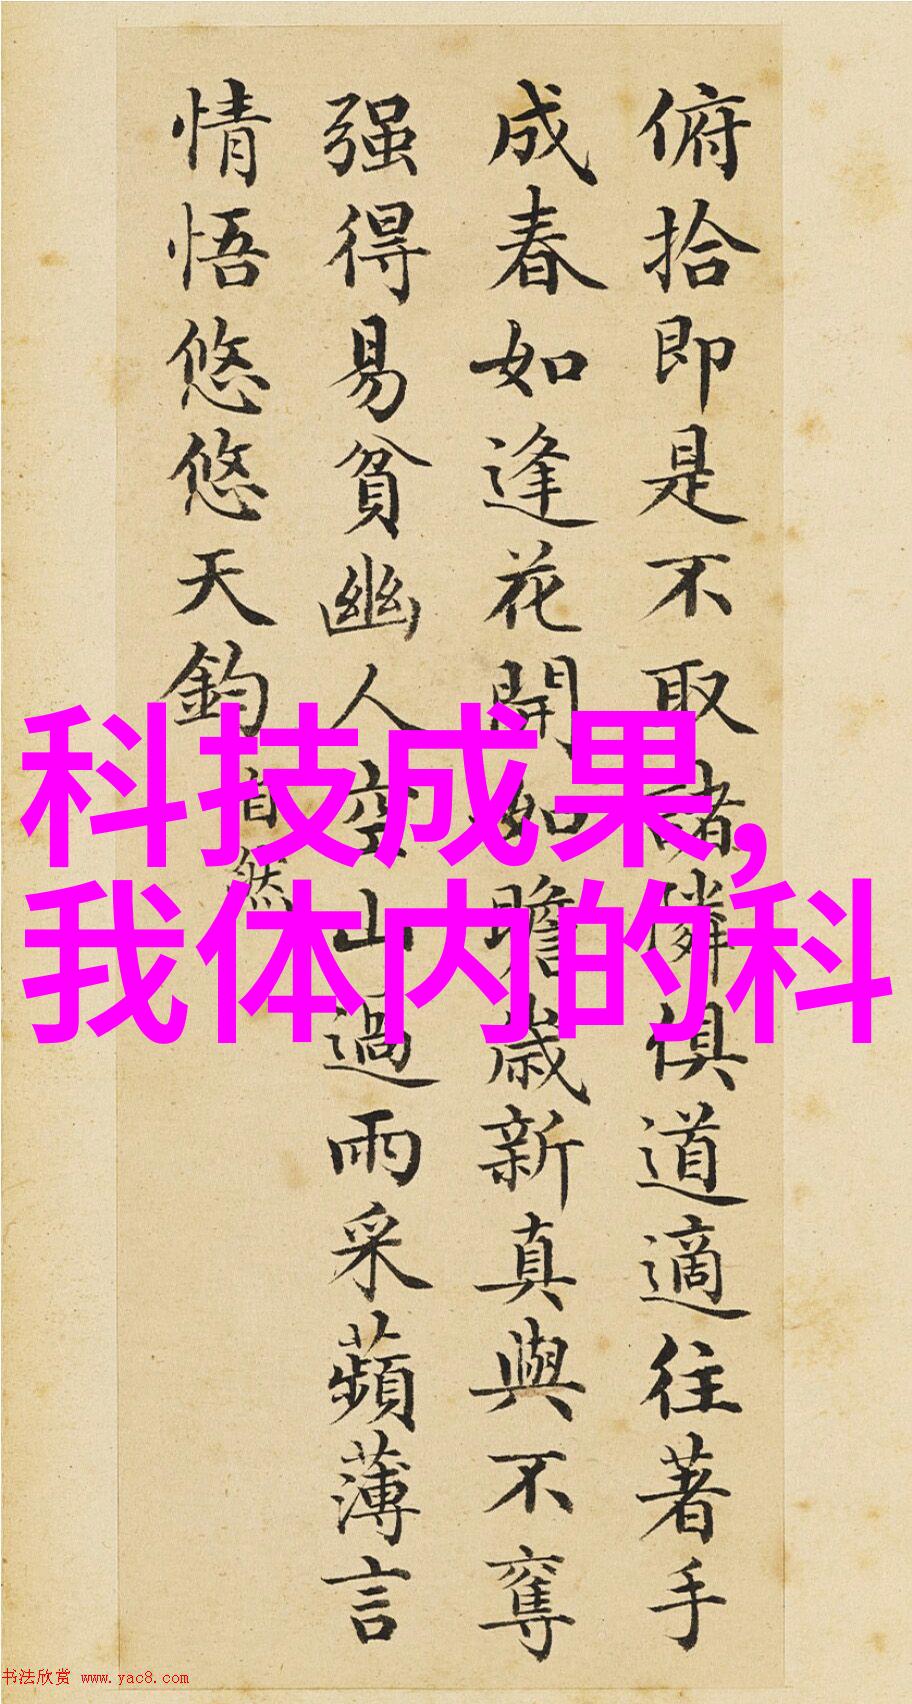 俯拾即是不取諸隣俱道適往著手
成春如逢花開如瞻歳新真與不奪
强得易貧幽人空山過雨采蘋薄言
情悟悠悠天鈞
自然
科技成果,
我体内的科
书法欣赏 www.yac8.com